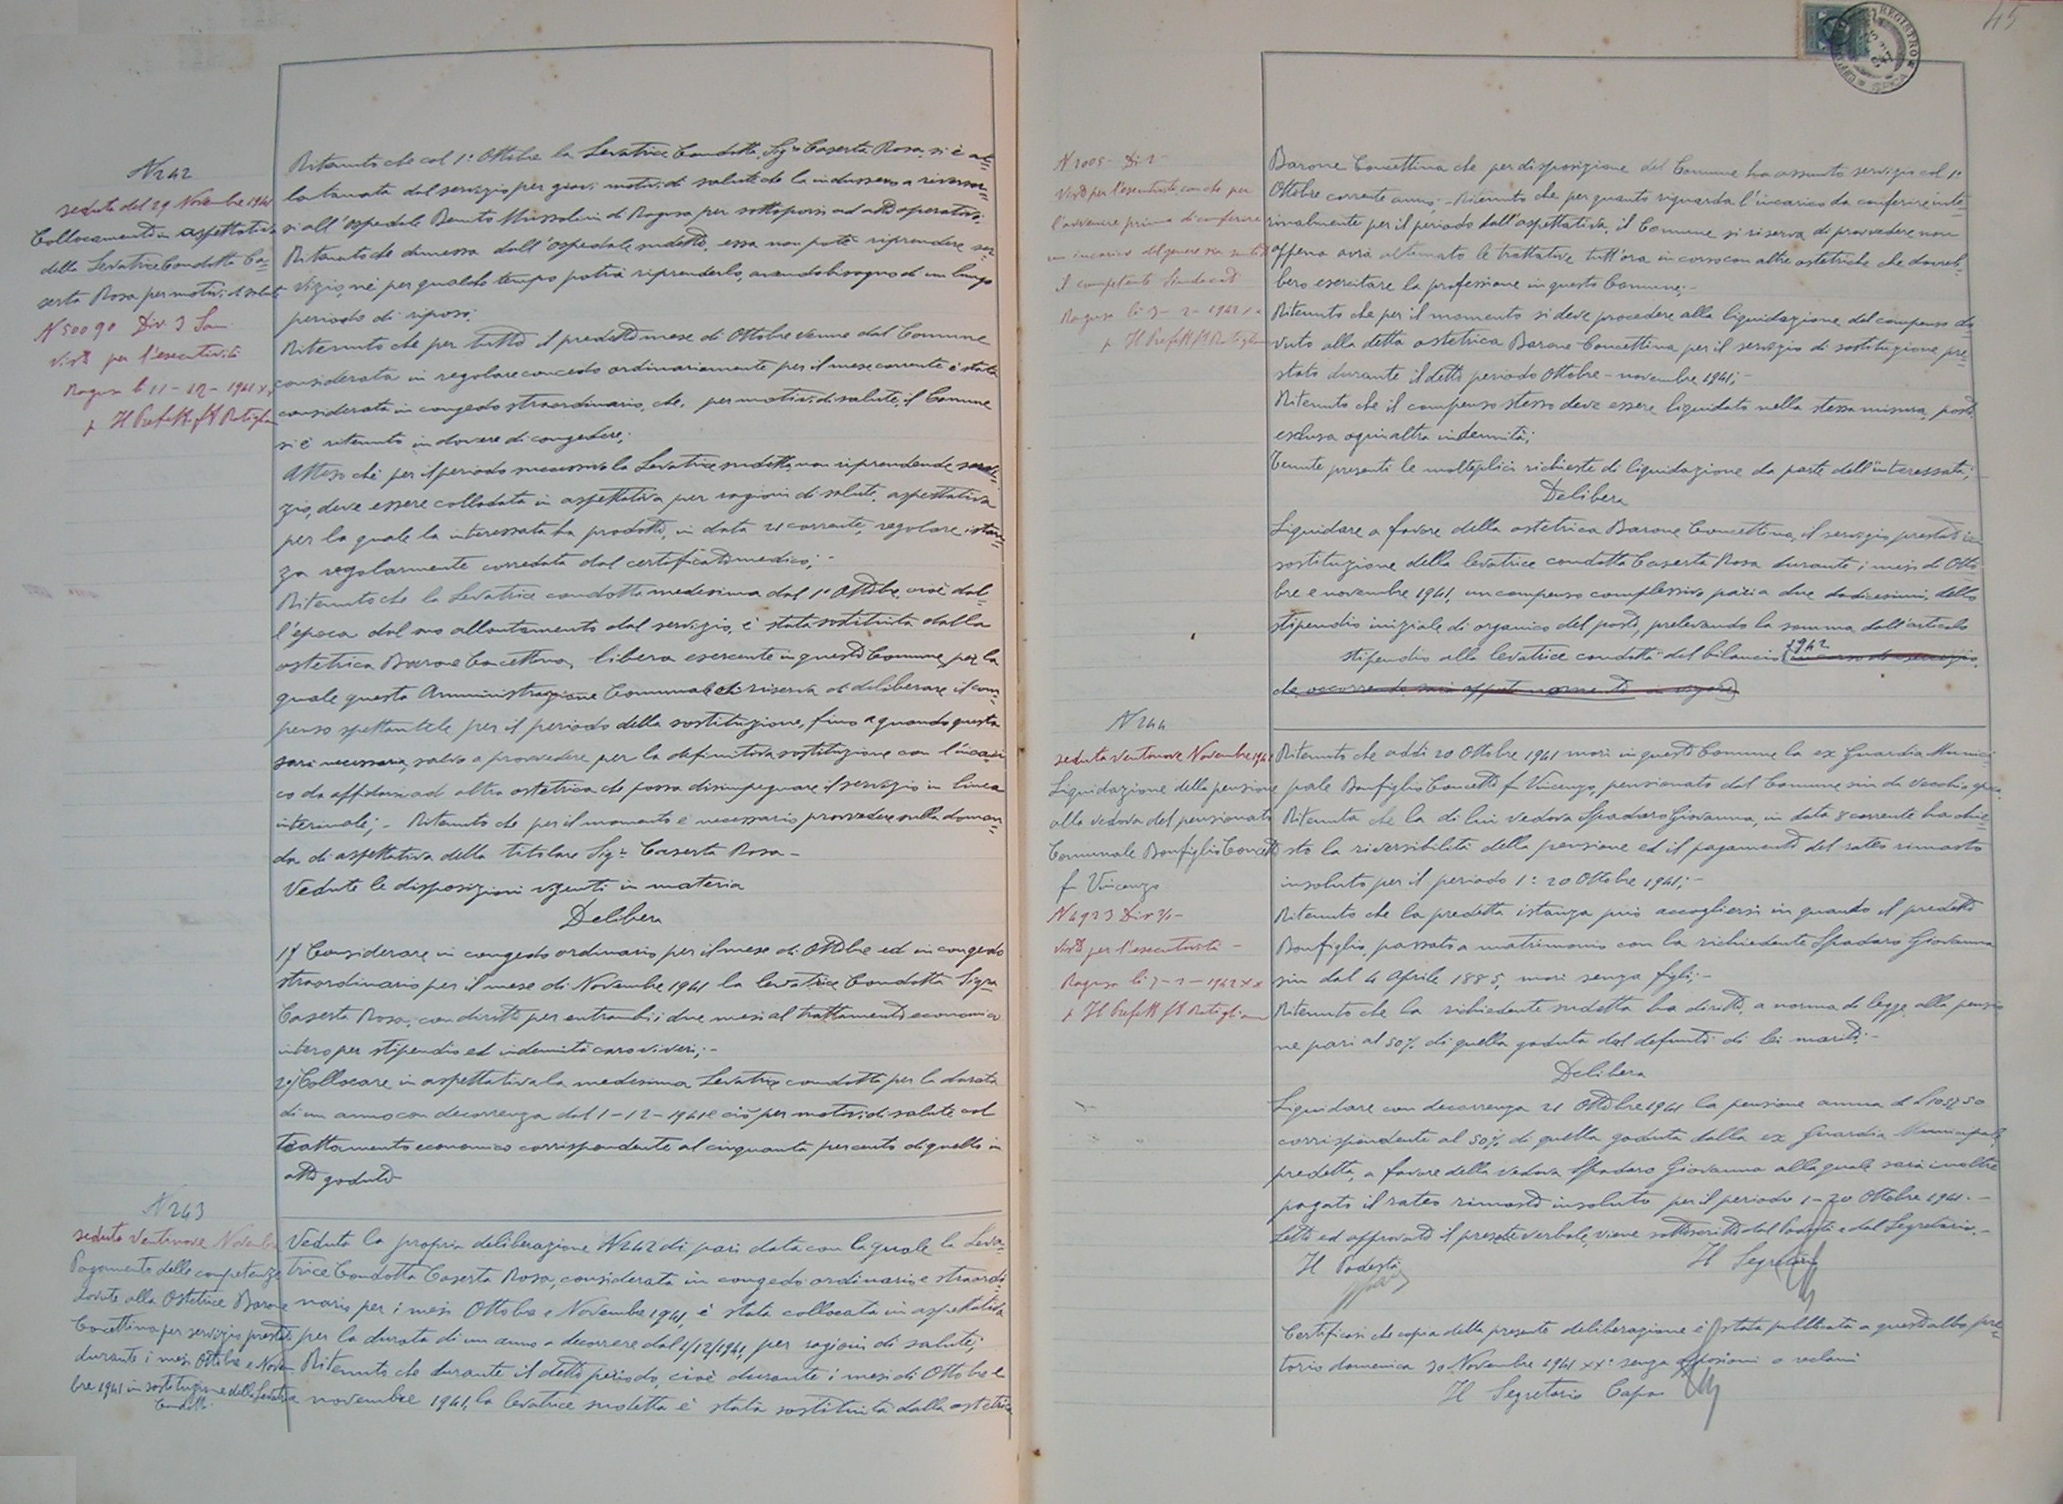 N 242
seduta del 29 Novembre 1941
Collocamento in aspettativa
della Levatrice Condotta Ca=
serta Rosa per motivi di salute
N 50090 Div 3 San.
Visto per l'esecutività
Ragusa lì 11-12-1941 XX
p Il Prefetto f/
Ritenuto che col 1° Ottobre la Levatrice Condotta, Sig.ra Caserta Rosa, si è al=
lontanata dal servizio per gravi motivi di salute che la indussero a ricover=
si all'ospedale Benito Mussolini di Ragusa per sottoporsi ad atto operatorio;
Ritenuto che dimessa dall'ospedale sudetto, essa non potè riprendere ser=
vizio, nè per qualche tempo potrà riprenderlo, avendo bisogno di un lungo
periodo di riposo;
Ritenuto che per tutto il predetto mese di Ottobre venne dal Comune
considerata in regolare concedo ordinario mentre per il mese corrente è stata
considerata in congedo straordinario, che, per motivi di salute, il Comune
si è ritenuto in dovere di congedere;
Atteso chè per il periodo successivo la Levatrice sudetta, non riprendende servi=
zio, deve essere collocata in aspettativa per ragioni di salute, aspettativa
per la quale la interessata ha prodotto, in data 21 corrente, regolare istan=
za regolarmente corredata dal certificato medico; -
Ritenuto che la Levatrice condotta medesima dal 1° Ottobre, cioè dal=
l'epoca dal suo allontamento dal servizio, è stata sostituita dalla
ostetrica Barone Concettina, libera esercente in questo Comune, per la
quale questa Amministrazione Comunale si riserva di deliberare il com=
penso spettantele per il periodo della sostituzione, fino a quando questa
sarà necessaria, salvo a provvedere per la definitiva sostituzione con l'incari=
co da affidarsi ad altra ostetrica che possa disimpegnare il servizio in linea
interinale; - Ritenuto che per il momento è necessario provvedere sulla doman=
da di aspettativa della titolare Sig.ra Caserta Rosa -
Vedute le disposizioni vigenti in materia
Delibera
1°/ Considerare in congedo ordinario per il mese di Ottobre ed in congedo
straordinario per il mese di Novembre 1941 la Levatrice Condotta Sig.ra
Caserta Rosa, con diritto per entrambi i due mesi al trattamento economico
intero per stipendio ed indennità caro viveri; -
2°/ Collocare in aspettativa la medesima Levatrice condotta per la durata
di un anno con decorrenza dal 1-12-1941 e ciò per motivi di salute col
trattamento economico corrispondente al cinquanta per cento di quello in
atto goduto
N 243
seduta Ventinove Novembre
Pagamento delle competenze
dovute alla Ostetrica Barone
Concettina per servizio prestato
durante i mesi Ottobre e Novem
bre 1941 in sostituzione della Levatrice
Condotta
Veduta la propria deliberazione N 242 di pari data con la quale la Leva=
trice Condotta Caserta Rosa, considerata in congedo ordinario e straordi=
nario per i mesi Ottobre e Novembre 1941, è stata collocata in aspettativa
per la durata di un anno a decorrere dal 1/12/1941, per ragioni di salute;
Ritenuto che durante il detto periodo, cioè durante i mesi di Ottobre e
novembre 1941, la levatrice sudetta è stata sostituita dalla ostetrica
45
N 2005 - Div 2 -
Visto per l'esecutività con che per
l'avvenire prima di conferire
un incarico del genere sia sentito
il competente Sindacato
Ragusa lì 7-2-1942 XX
p Il Prefetto f/
Barone Concettina che per disposizione del Comune ha assunto servizio col 1°
Ottobre corrente anno; - Ritenuto che per quanto riguarda l'incarico da conferire inte=
rinalmente per il periodo dall'aspettativa, il Comune si riserva di provvedere non
appena avrà ultimato le trattative tutt'ora in corso con altre ostetriche che dovreb=
bero esercitare la professione in questo Comune; -
Ritenuto che per il momento si deve procedere alla liquidazione del compenso do
vuto alla detta ostetrica Barone Concettina per il servizio di sostituzione pre=
stato durante il detto periodo Ottobre - novembre 1941; -
Ritenuto che il compenso stesso deve essere liquidato nella stessa misura, posto
esclusa ogni altra indennità;
Tenute presenti le molteplici richieste di liquidazione da parte dell'interessata;
Delibera
Liquidare a favore della ostetrica Barone Concettina, il servizio prestato in
sostituzione della levatrice condotta Caserta Rosa durante i mesi di Otto
bre e novembre 1941, un compenso complessivo pari a due dodicesimi, dello
stipendio iniziale di organico del posto, prelevando la somma dall'articolo
stipendio alla levatrice condotta del bilancio 1942
N 244
seduta Ventinove Novembre 1941
Liquidazione della pensione
alla vedova del pensionato
Comunale Bonfiglio Concetto
f Vincenzo
N 4923 Div 2/-
Visto per l'esecutività -
Ragusa lì 7-2-1942 XX
p Il Prefetto f/
Ritenuto che addì 20 Ottobre 1941 morì in questo Comune la ex Guardia Munici=
pale Bonfiglio Concetto f Vincenzo, pensionato dal Comune sin da vecchia epoca
Ritenuta che la di lui vedova Spadaro Giovanna, in data 8 corrente ha chie=
sto la riversibilità della pensione ed il pagamento del rateo rimasto
insoluto per il periodo 1: 20 Ottobre 1941; -
Ritenuto che la predetta istanza può accogliersi in quanto il predetto
Bonfiglio, passato a matrimonio con la richiedente Spadaro Giovanna
sin dal 4 Aprile 1885, morì senza figli; -
Ritenuto che la richiedente sudetta ha diritto, a norma di legge, alla pensio
ne pari al 50% di quella goduta dal defunto di lei marito; -
Delibera
Liquidare con decorrenza 21 Ottobre 1941 la pensione annua di L 1057,50
corrispondente al 50% di quella goduta dalla ex Guardia Municipale
predetta, a favore della vedova Spadaro Giovanna alla quale sarà inoltre
pagato il rateo rimasto insoluto per il periodo 1-20 Ottobre 1941. -
Letto ed approvato il presente verbale, viene sottoscritto dal Podestà e dal Segretario. -
Il Podestà Il Segretario
Certificasi che copia della presente deliberazione è stata pubblicata a quest'albo pre=
torio domenica 30 Novembre 1941 XX° senza opposizioni o reclami
Il Segretario Capo